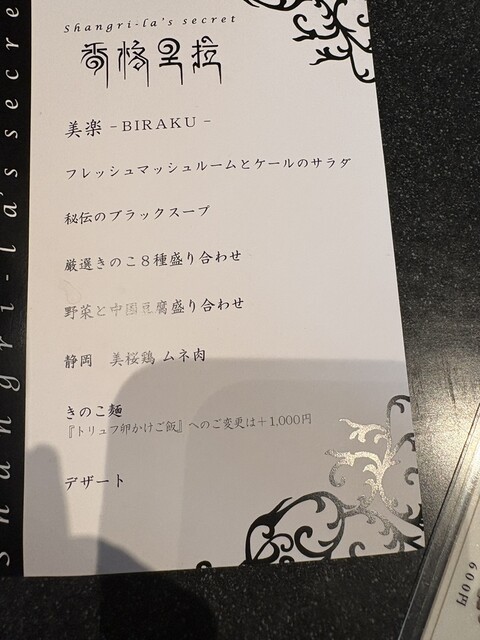 Shangri-la's secret
香格里拉
美楽 -BIRAKU-
フレッシュマッシュルームとケールのサラダ
秘伝のブラックスープ
厳選きのこ8種盛り合わせ
野菜と中国豆腐盛り合わせ
静岡 美桜鶏 ムネ肉
きのこ麺
『トリュフ卵かけご飯』へのご変更は+1,000円
デザート
shangri-la's secre
600円